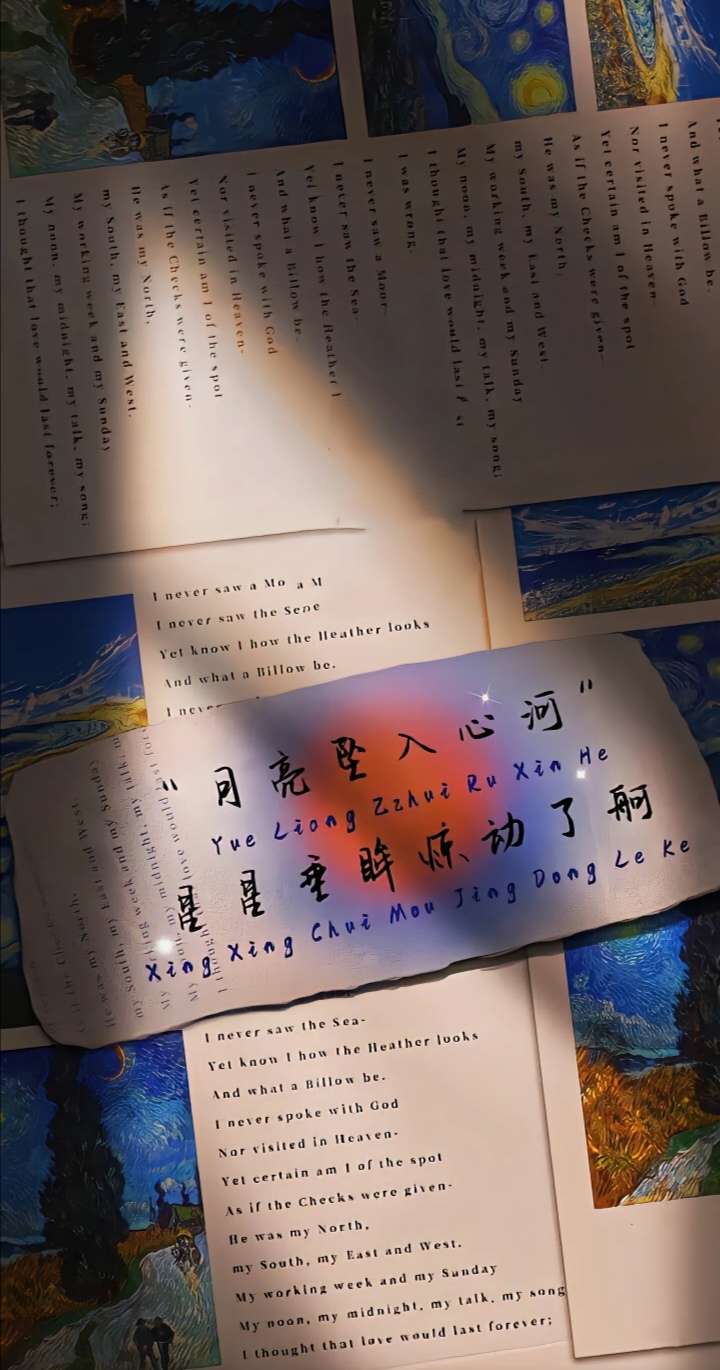 And what a Billow be.
I never spoke with God
Nor visited in Heaven-
Yet certain am I of the spot
As if the Checks were given-
He was my North,
my South, my East and West.
My working week and my Sunday
My noon, my midnight, my talk, my song;
I thought that love would last
I was wrong.
I never saw a Moor-
I never saw the Sea-
Yet know I how the Heather l
And what a Billow be.
I never spoke with God
Nor visited in Heaven-
Yet certain am I of the spot
As if the Checks were given-
He was my North,
my South, my East and West.
My working week and my Sunday
My noon, my midnight, my talk, my song;
I thought that love would last forever;
I never saw a Mo a M
I never saw the Sene
Yet know I how the Heather looks
And what a Billow be.
I never
"月亮坠入心河"
Yue Liang Zzhui Ru Xin He
星星垂眸惊动了舸
Xing Xing Chui Mou Jing Dong Le Ke
I never saw the Sea-
Yet know I how the Heather looks
And what a Billow be.
I never spoke with God
Nor visited in Heaven-
Yet certain am I of the spot
As if the Checks were given-
He was my North,
my South, my East and West.
My working week and my Sunday
My noon, my midnight, my talk, my song
I thought that love would last forever;